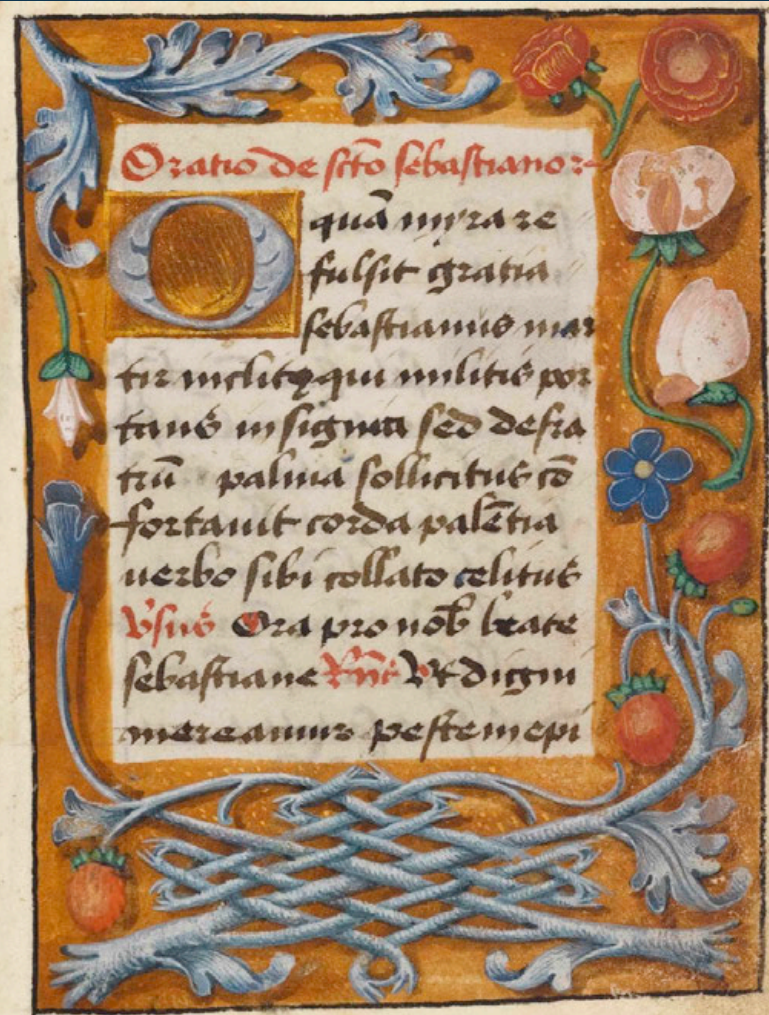 Oratio de scto sebastiano
O quā myra re
fulsit gratia
sebastianus mar
tir inclitꝰ qui militis por
tans insignia sed de fra
trū palma sollicitus cō
fortauit corda palētia
uerbo sibi collato celitus
Vsus Ora pro nob beate
sebastiane Rns Vt digni
mereamur pestem epi